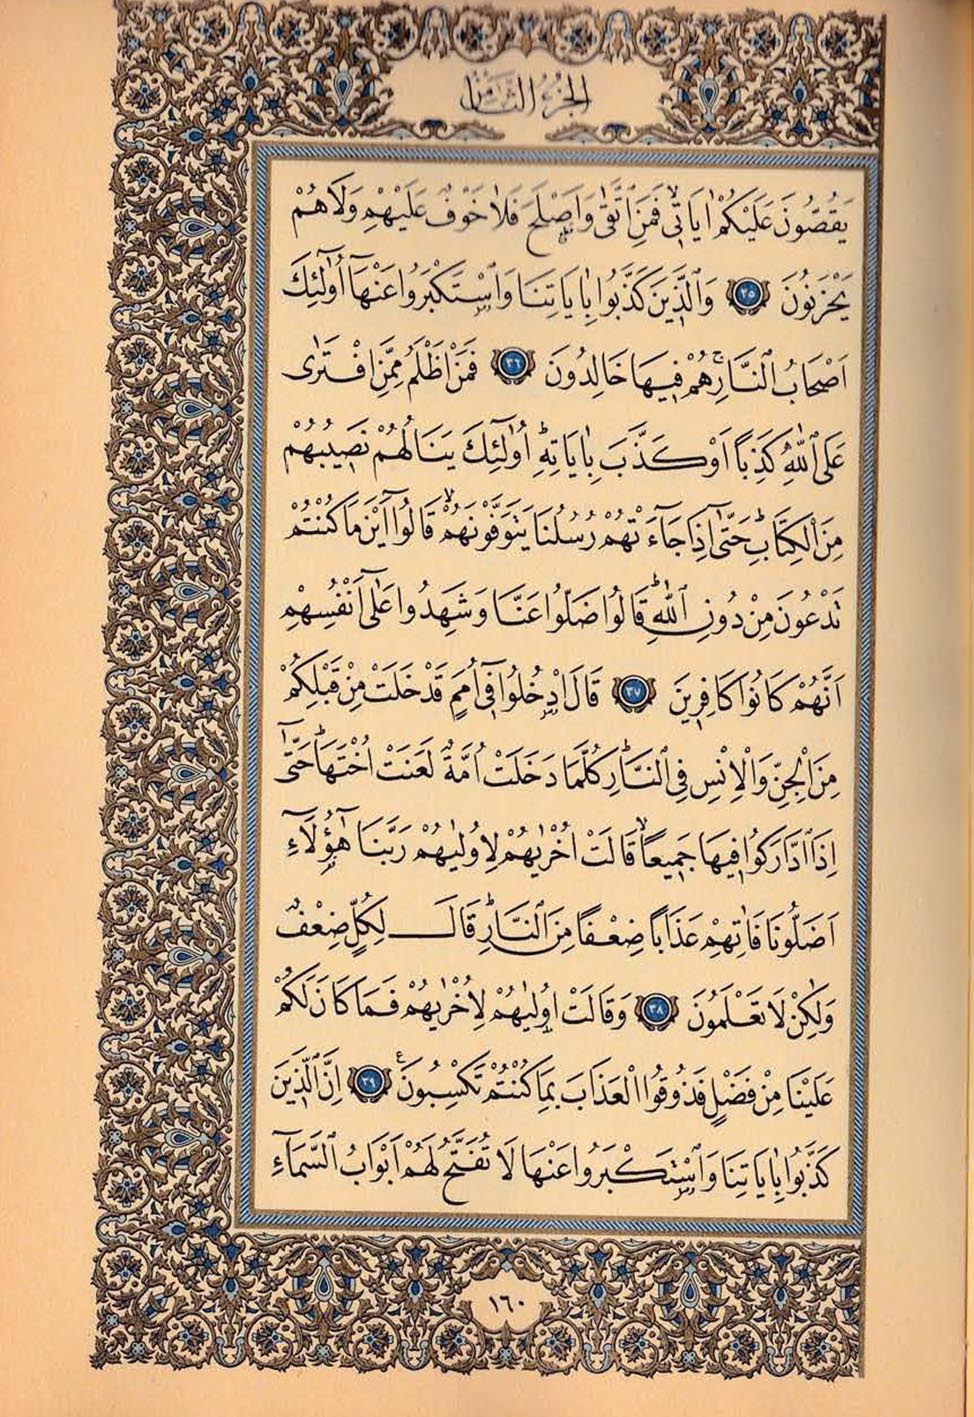 الجزء الثامن
يَقُصُّونَ عَلَيْكُمْ اٰيَاتٖيۙ فَمَنِ اتَّقٰى وَاَصْلَحَ فَلَا خَوْفٌ عَلَيْهِمْ وَلَا هُمْ
يَحْزَنُونَ ٣٥ وَالَّذٖينَ كَذَّبُوا بِاٰيَاتِنَا وَاسْتَكْبَرُوا عَنْهَٓا اُو۬لٰٓئِكَ
اَصْحَابُ النَّارِۚ هُمْ فٖيهَا خَالِدُونَ ٣٦ فَمَنْ اَظْلَمُ مِمَّنِ افْتَرٰى
عَلَى اللّٰهِ كَذِبًا اَوْ كَذَّبَ بِاٰيَاتِهٖؕ اُو۬لٰٓئِكَ يَنَالُهُمْ نَصٖيبُهُمْ
مِنَ الْكِتَابِؕ حَتّٰٓى اِذَا جَٓاءَتْهُمْ رُسُلُنَا يَتَوَفَّوْنَهُمْۙ قَالُٓوا اَيْنَ مَا كُنْتُمْ
تَدْعُونَ مِنْ دُونِ اللّٰهِؕ قَالُوا ضَلُّوا عَنَّا وَشَهِدُوا عَلٰٓى اَنْفُسِهِمْ
اَنَّهُمْ كَانُوا كَافِرٖينَ ٣٧ قَالَ ادْخُلُوا فٖٓي اُمَمٍ قَدْ خَلَتْ مِنْ قَبْلِكُمْ
مِنَ الْجِنِّ وَالْاِنْسِ فِي النَّارِؕ كُلَّمَا دَخَلَتْ اُمَّةٌ لَعَنَتْ اُخْتَهَاؕ حَتّٰٓى
اِذَا ادَّارَكُوا فٖيهَا جَمٖيعًاۙ قَالَتْ اُخْرٰيهُمْ لِاُو۫لٰيهُمْ رَبَّنَا هٰٓؤُ۬لَٓاءِ
اَضَلُّونَا فَاٰتِهِمْ عَذَابًا ضِعْفًا مِنَ النَّارِؕ قَالَ لِكُلٍّ ضِعْفٌ
وَلٰكِنْ لَا تَعْلَمُونَ ٣٨ وَقَالَتْ اُو۫لٰيهُمْ لِاُخْرٰيهُمْ فَمَا كَانَ لَكُمْ
عَلَيْنَا مِنْ فَضْلٍ فَذُوقُوا الْعَذَابَ بِمَا كُنْتُمْ تَكْسِبُونَ ع ٣٩ اِنَّ الَّذٖينَ
كَذَّبُوا بِاٰيَاتِنَا وَاسْتَكْبَرُوا عَنْهَا لَا تُفَتَّحُ لَهُمْ اَبْوَابُ السَّمَٓاءِ
١٦٠